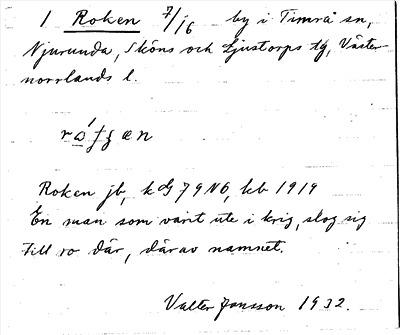 1 Roken 7/16 by i Timrå sn,
Njurunda, Sköns och Ljustorps tg, Väster-
norrlands l.
Roken jb, k G 79 N6, kb 1919
En man som varit ute i krig, slog sig
till ro där, därav namnet.
Valter Jansson 1932.